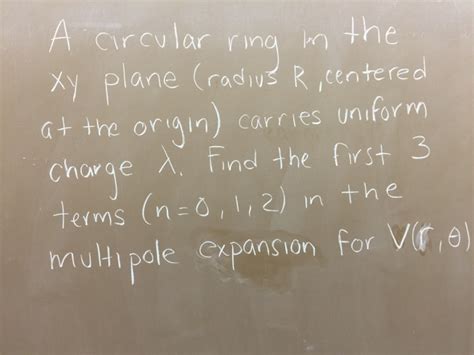 A circular ring in the
xy plane (radius R, centered
at the origin) carries uniform
charge λ. Find the first 3
terms (n=0,1,2) in the
multipole expansion for V(r,θ)